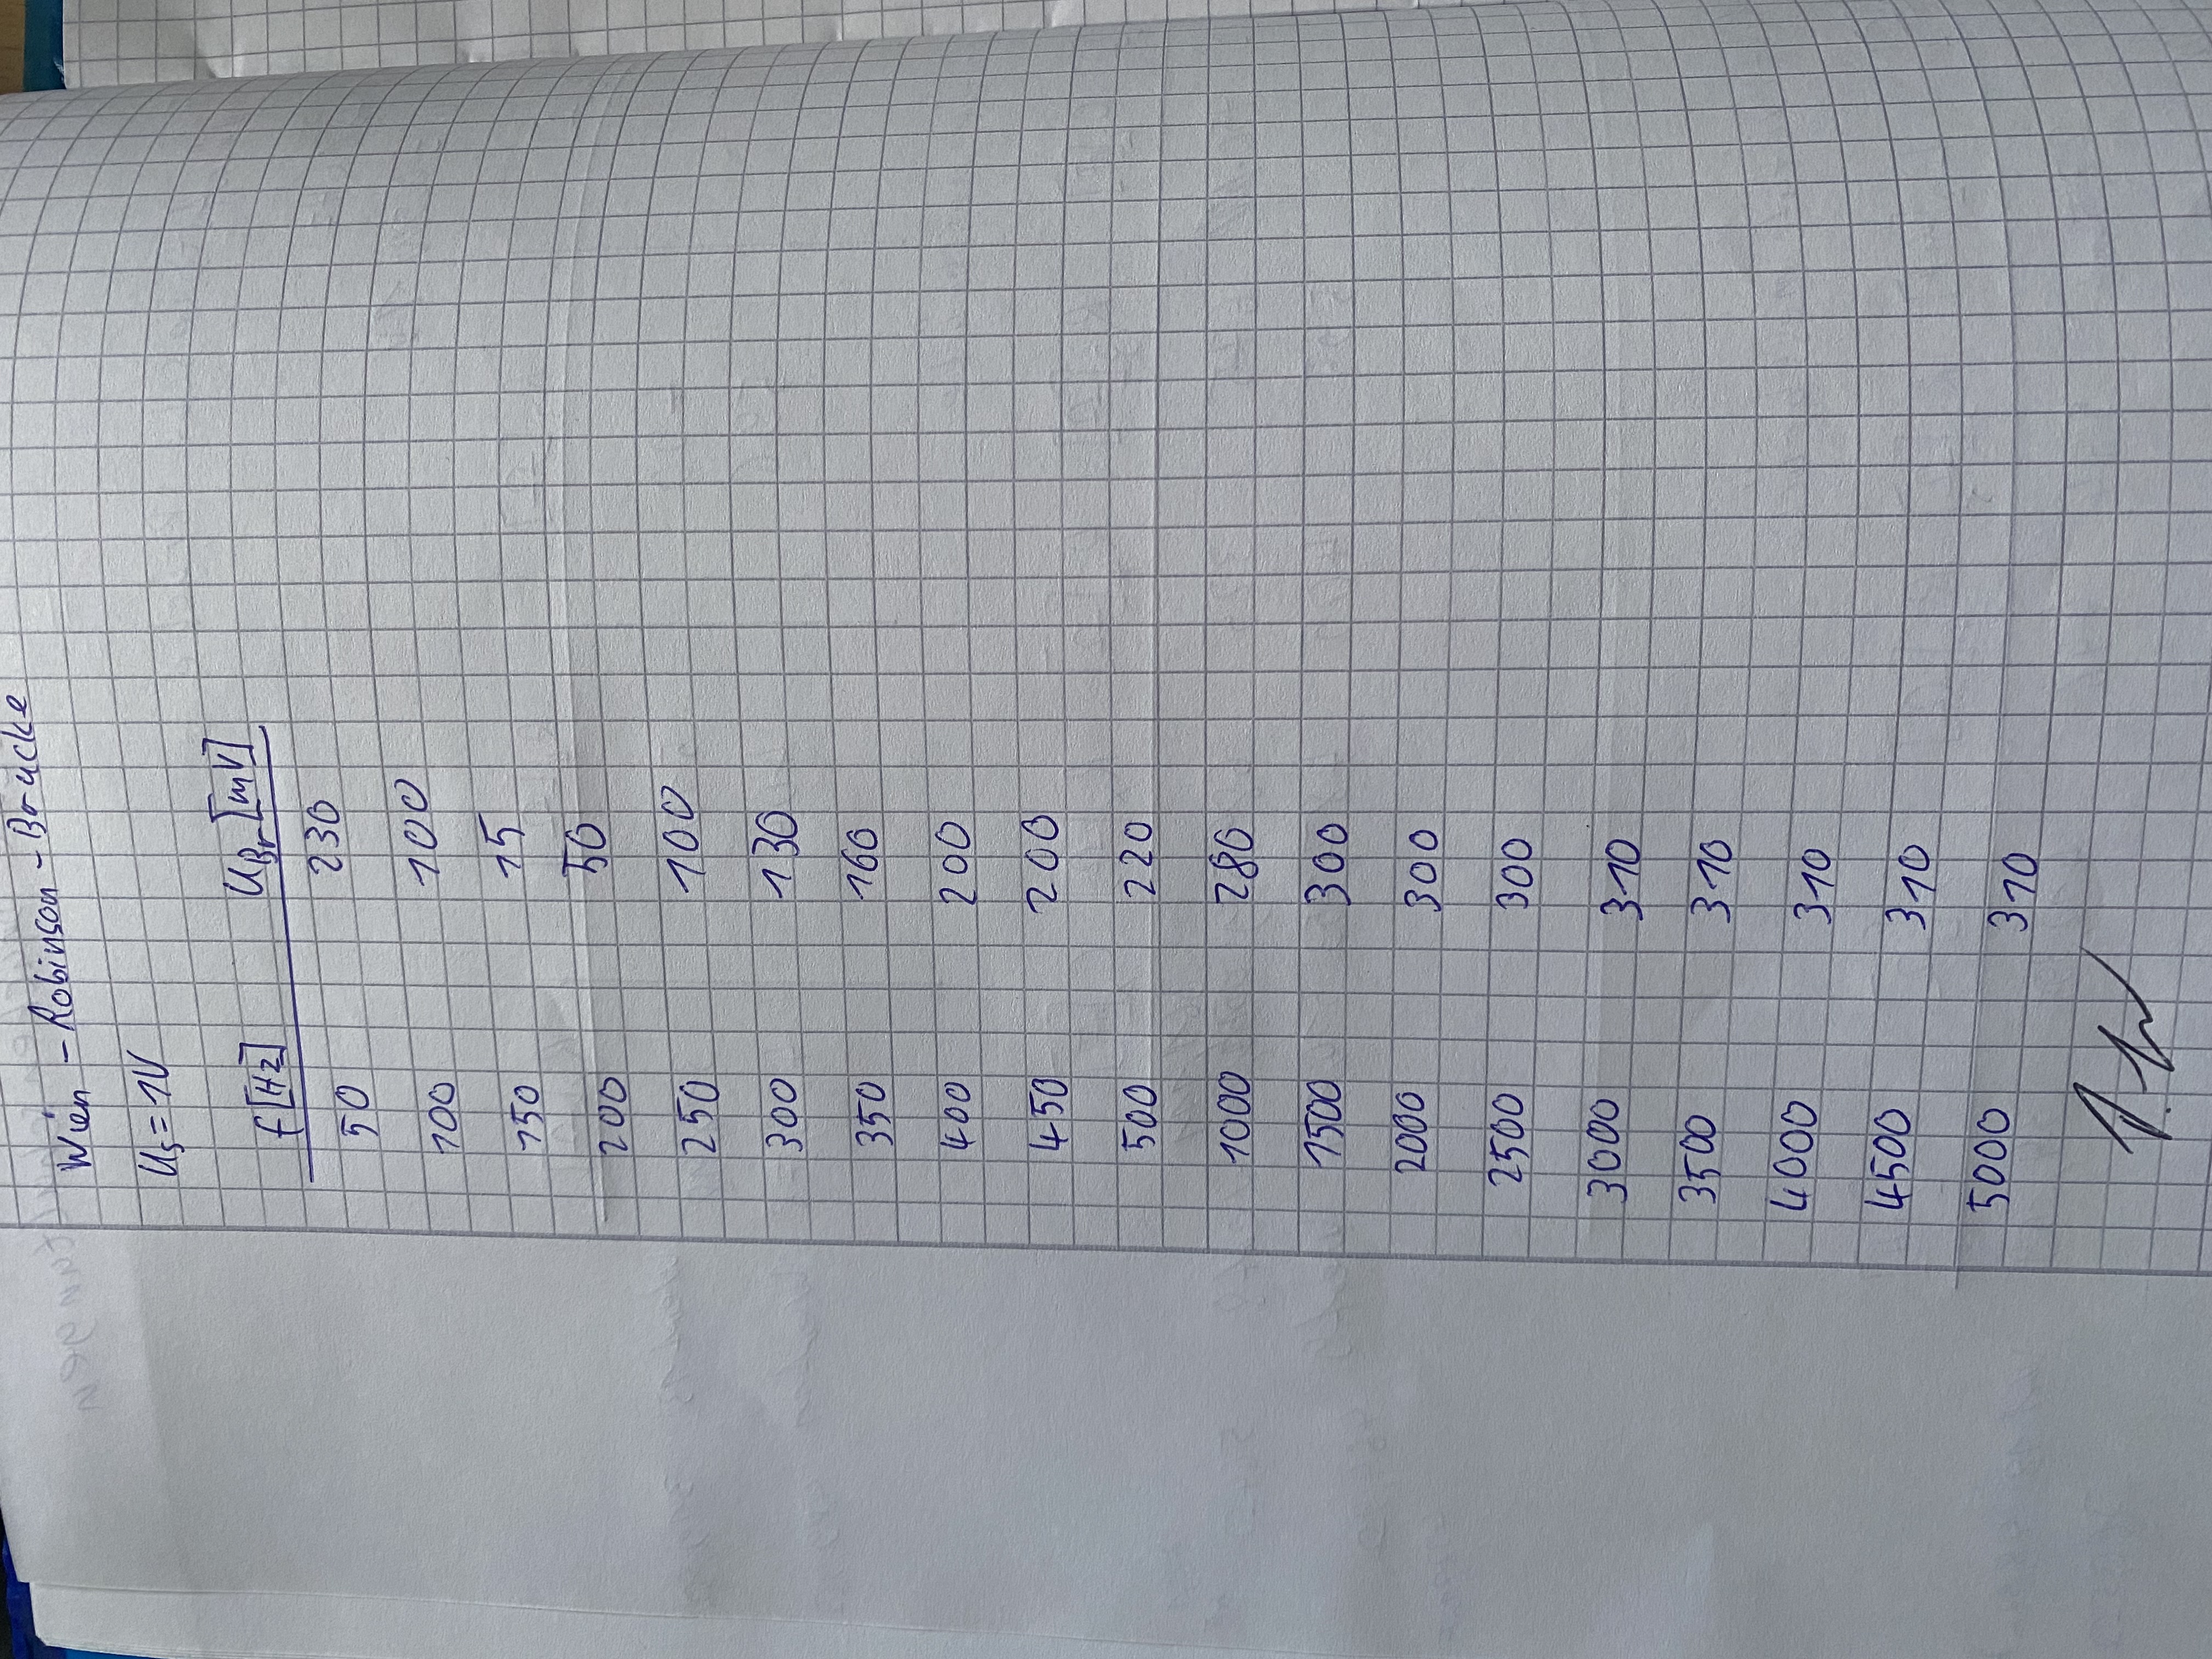 Wien - Robinson - Brücke
Us = 1V
f [Hz] UBr [mV]
50 230
100 100
150 15
200 50
250 100
300 130
350 160
400 200
450 200
500 220
1000 280
1500 300
2000 300
2500 300
3000 310
3500 310
4000 310
4500 310
5000 310